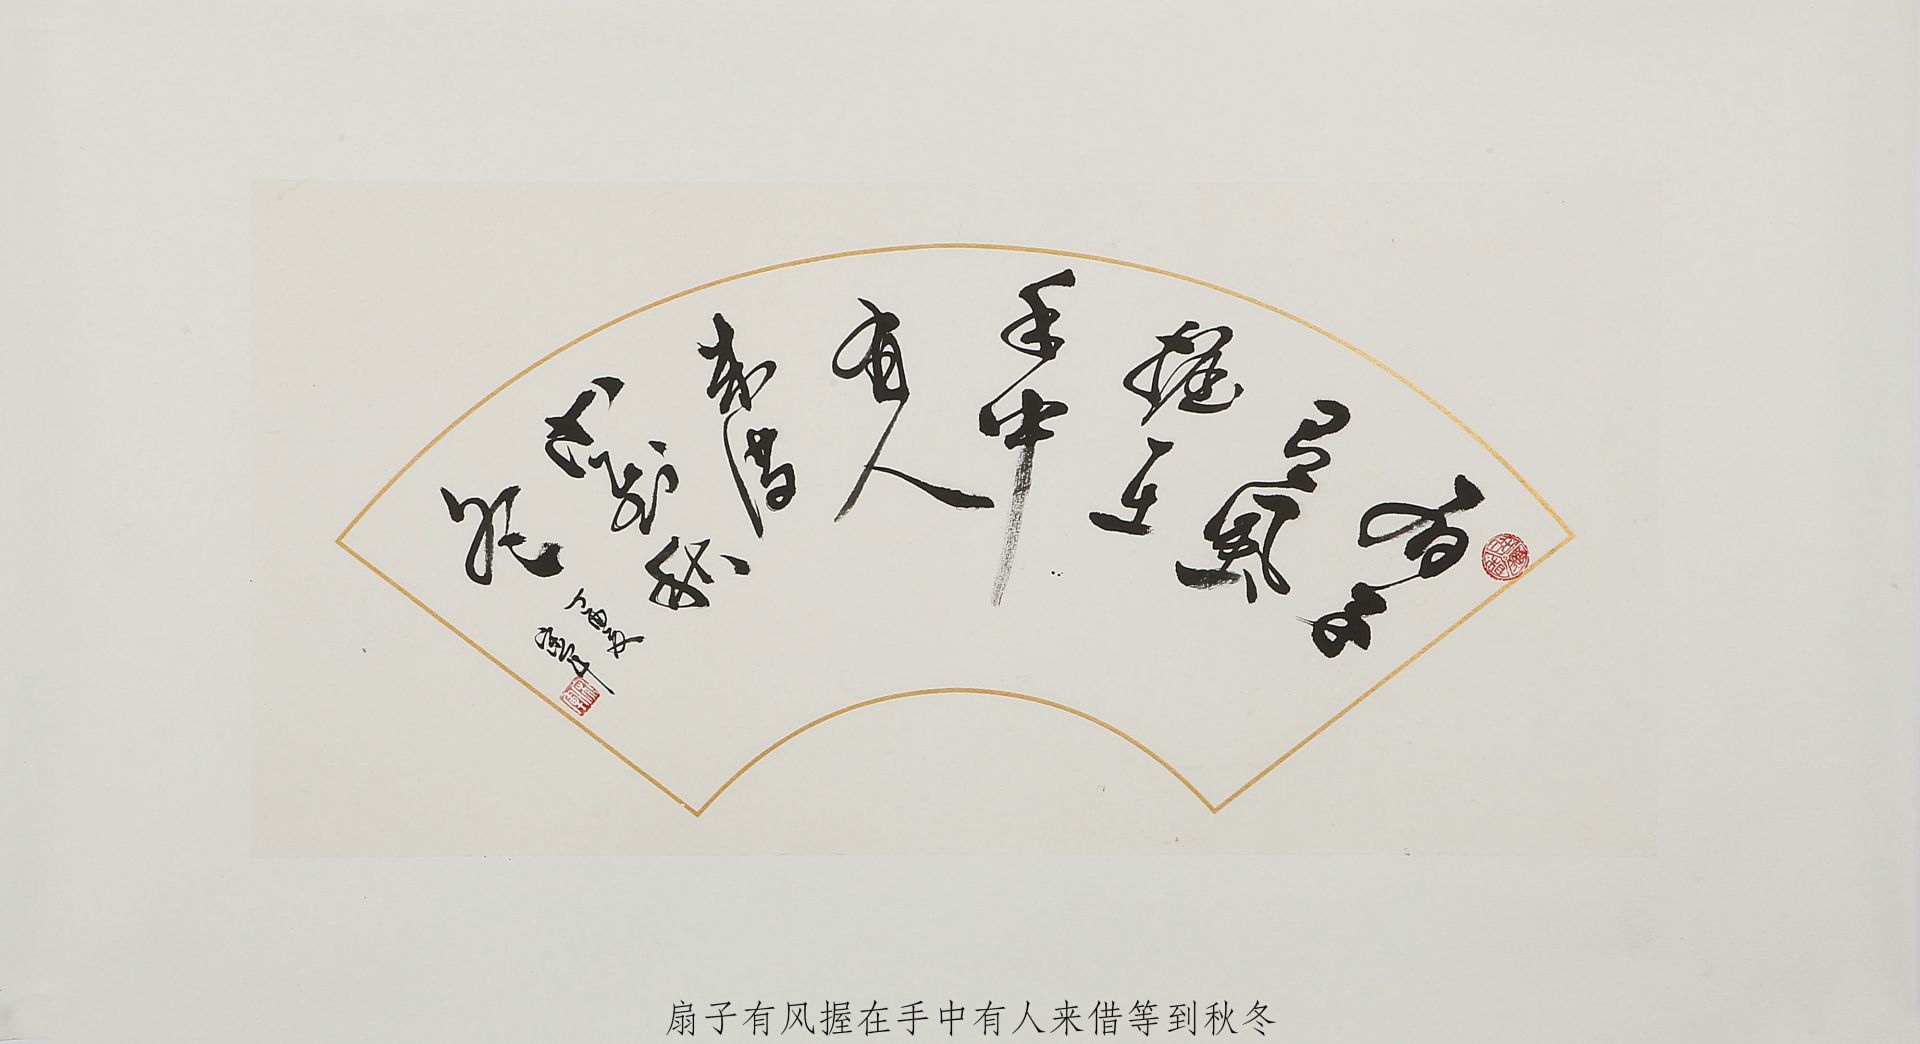 扇子
有風
握在
手中
有人
來借
等到秋
冬
丁酉夏
扇子有风握在手中有人来借等到秋冬